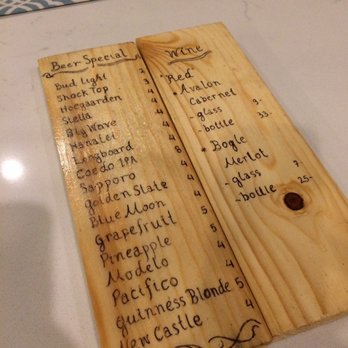 Beer Special
Bud light 2
Shock Top 3
Hoegaarden 4
Stella 4
Big Wave 4
Hanalei 4
Longboard 4
Coedo IPA 8
Sapporo 4
golden State 4
Blue Moon 4
grapefruit 5
Pineapple 5
Modelo 4
Pacifico 4
guinness Blonde 5
New Castle 4
Wine
*Red
* Avalon
Cabernet
- glass 9-
- bottle 33-
* Bogle
Merlot
- glass 7-
- bottle 25-